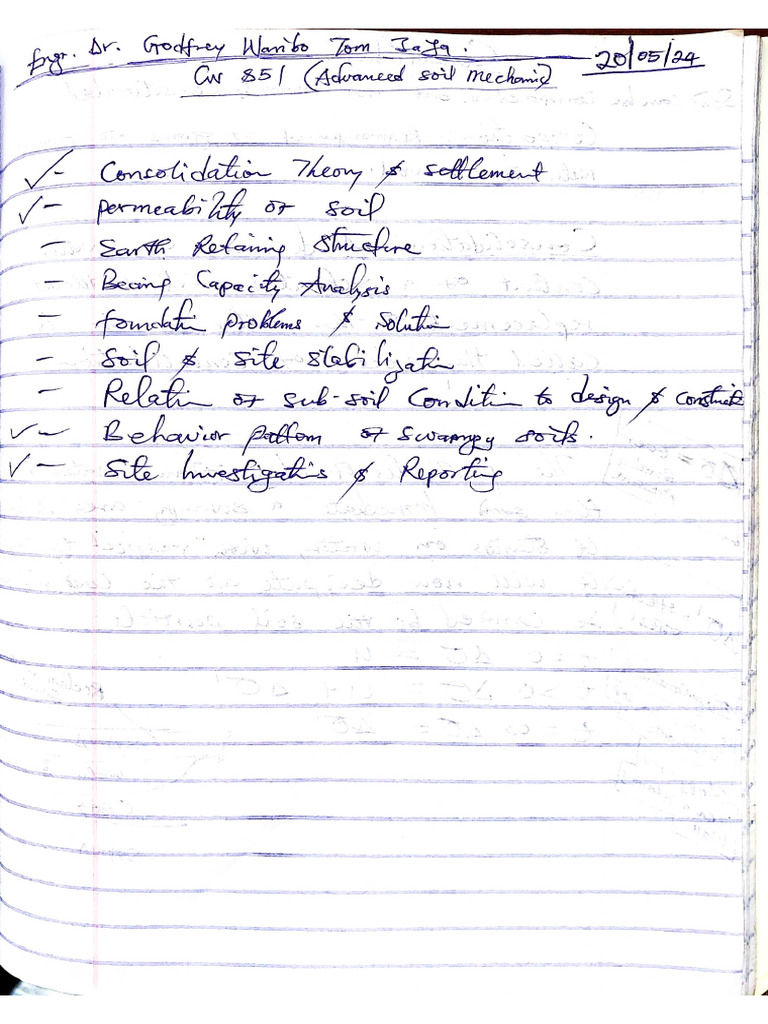 Engr. Dr. Godfrey Waribo Tom Jaja. 20/05/24
CW 851 (Advanced soil mechanic)
✓ - Consolidation Theory & settlement
✓ - permeability of soil
- Earth Retaining Structure
- Bearing Capacity Analysis
- foundation problems & solution
- Soil & site stabilization
- Relation of sub-soil Condition to design &
✓ - Behavior pattern of swampy soils.
✓ - Site Investigations & Reporting